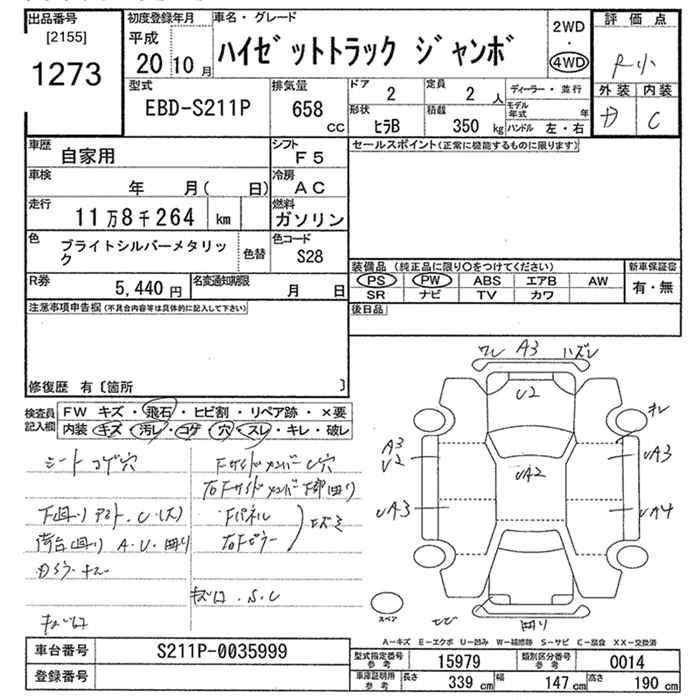 出品番号
[2155]
1273
初度登録年月
平成
20 10 月
車名・グレード
ハイゼットトラック ジャンボ
2WD
・
4WD
評価点
R小
外装 内装
D C
型式
EBD-S211P
排気量
658
CC
ドア
2
定員
2 人
形状
ヒラB
積載
350 kg
ディーラー・並行
モデル年式 年
ハンドル 左・右
車歴
自家用
シフト
F5
車検
年 月( 日)
冷房
AC
走行
11万8千264 km
燃料
ガソリン
色
ブライトシルバーメタリック
色替
色コード
S28
R券
5,440円
名変通知期限
月 日
セールスポイント(正常に機能するものに限ります)
装備品 (純正品に限り○をつけてください)
PS PW ABS エアB AW
SR ナビ TV カワ
新車保証書
有・無
後日品
注意事項申告欄(不具合内容等は具体的に記入して下さい)
修復歴 有〔箇所 〕
検査員記入欄
FW キズ・飛石・ヒビ割・リペア跡・×要
内装 キズ・汚レ・コゲ・穴・スレ・キレ・破レ
シート コゲ穴
下廻り アト.C(大)
荷台廻り A.U.曲り
キズ凹
Fサイドメンバー C穴
右Fサイドメンバー下部曲り
Fパネル
右Fピラー
キズ凹.S.C
ワレ A3 ハズレ
U2
オレ
A3
U2
UA2
UA3
UA3
UA4
スペア
ヒビ
曲り
A-キズ E-エクボ U-凹み W-補修跡 S-サビ C-腐食 XX-交換済
車台番号
S211P-0035999
登録番号
型式指定番号
参考
15979
類別区分番号
参考
0014
車庫証明用
参考
長さ
339 cm
幅
147 cm
高さ
190 cm